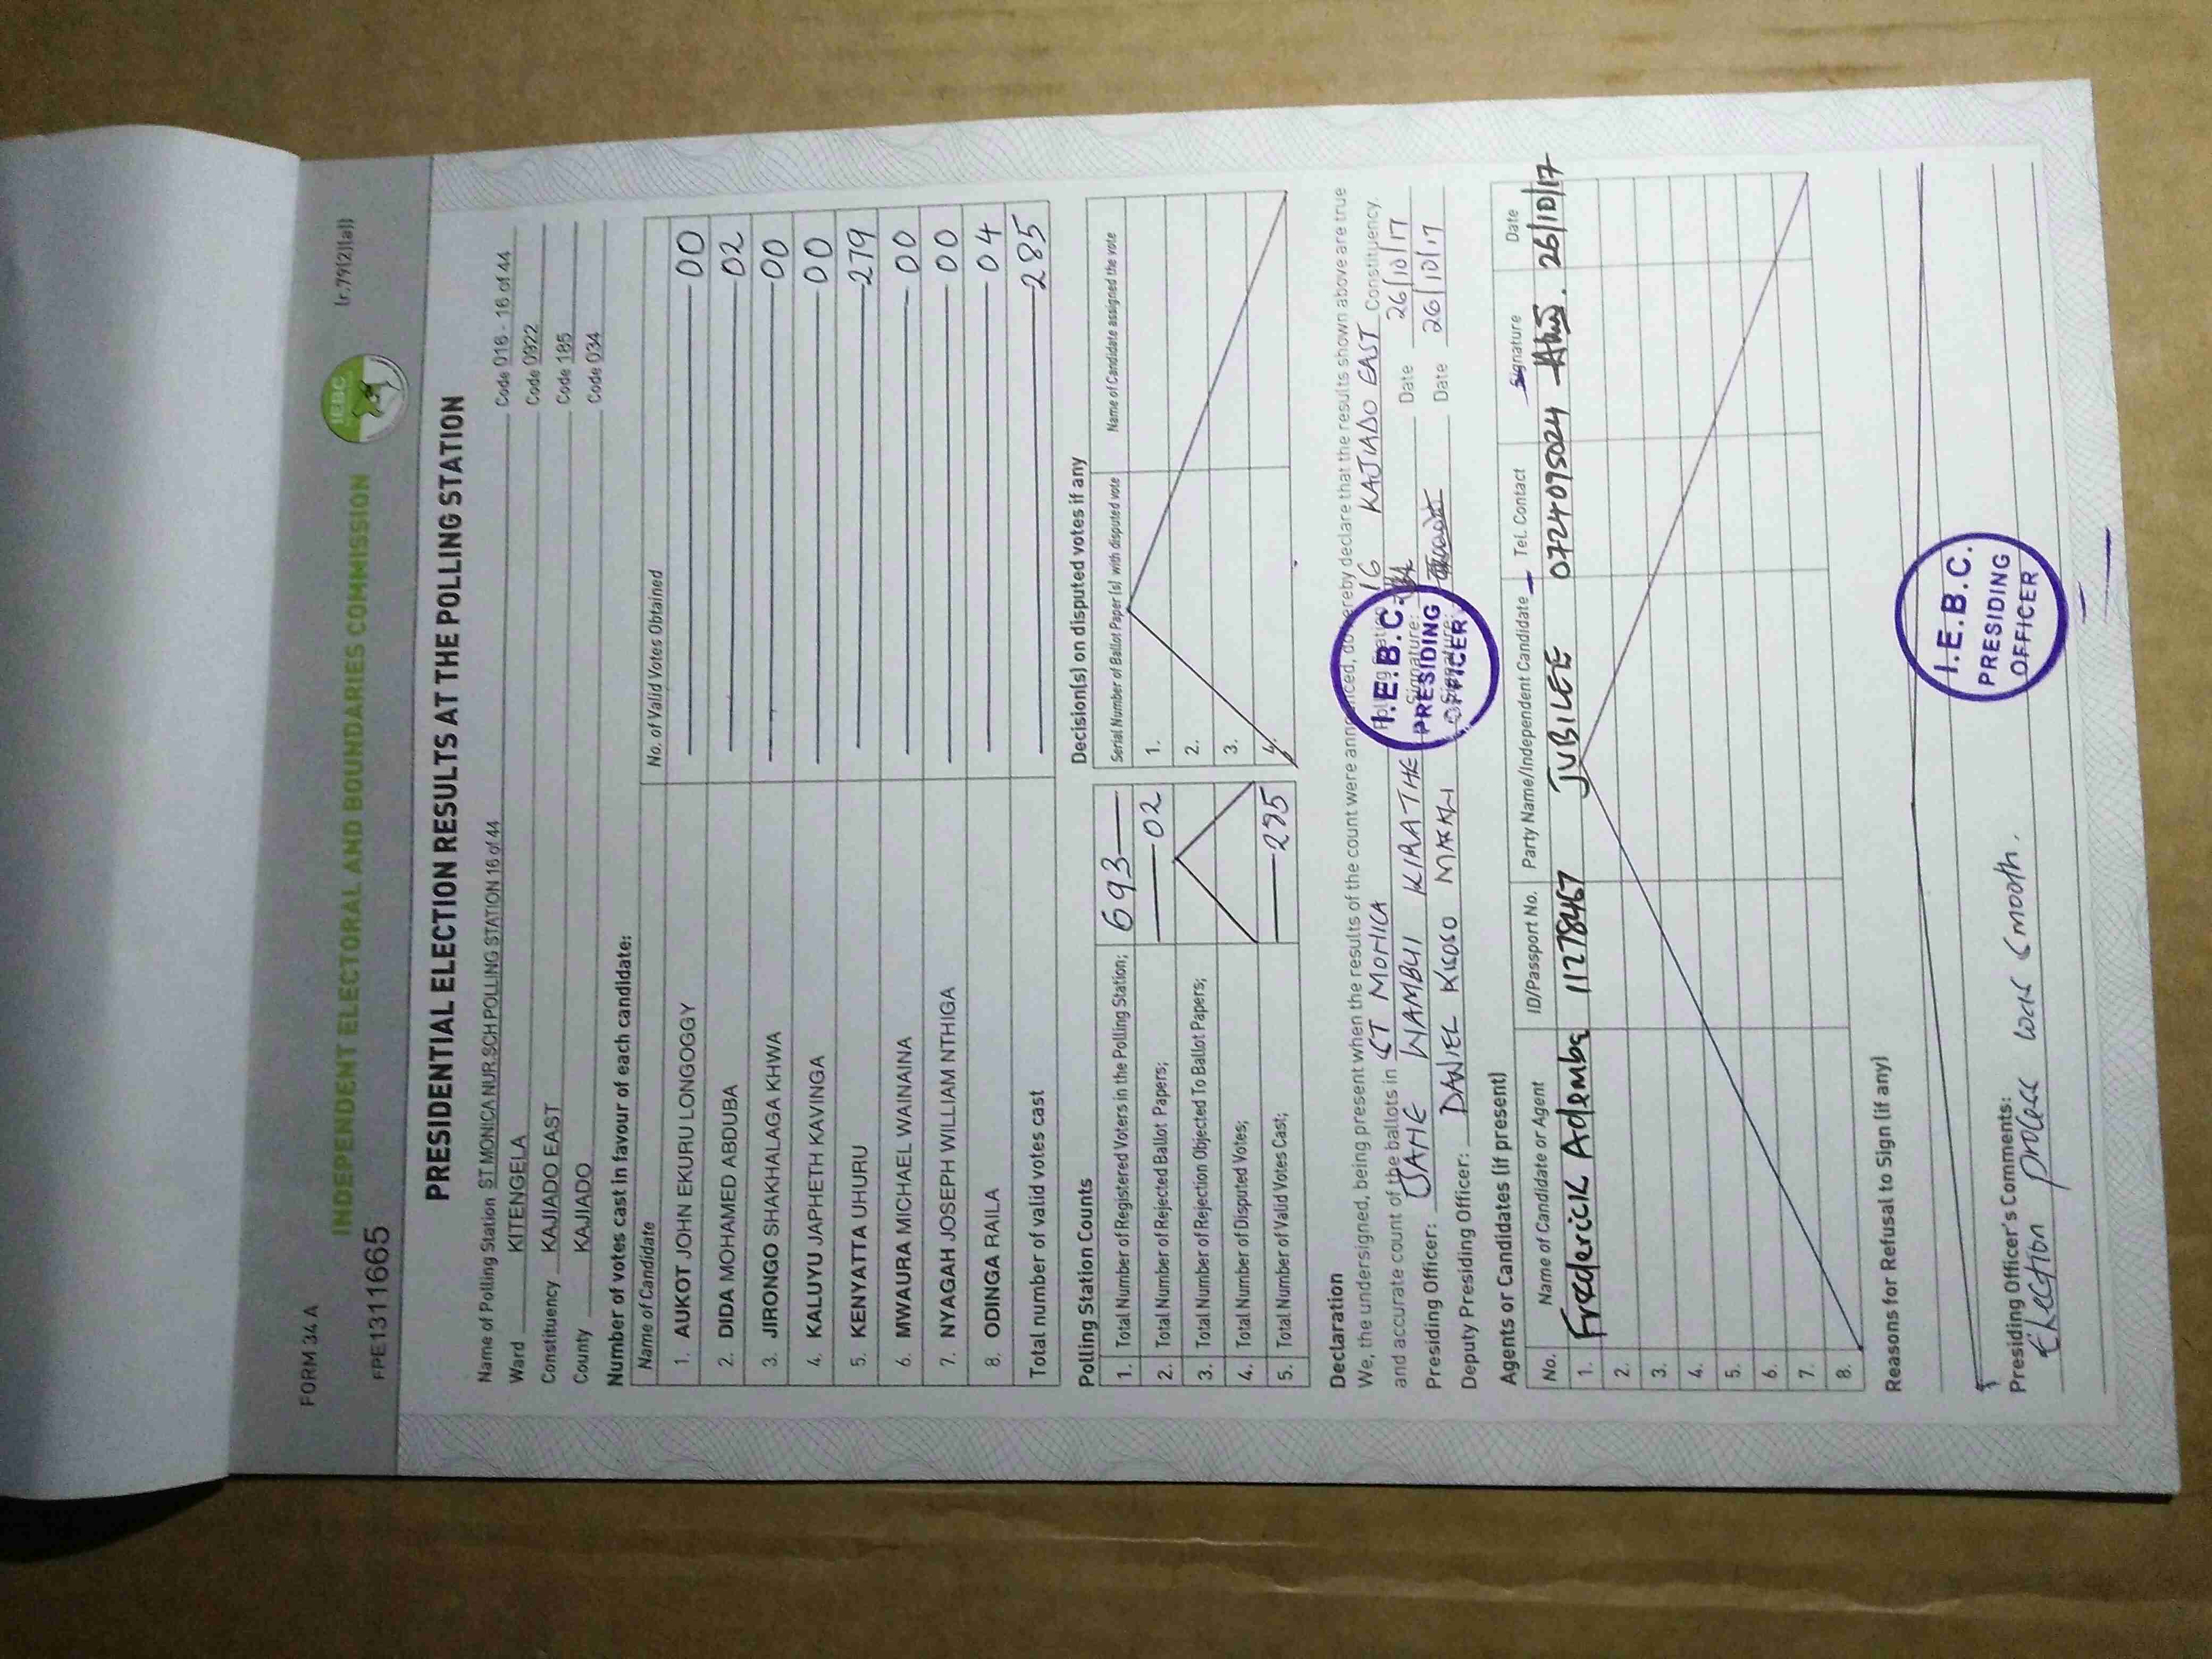 FORM 34 A
(r.79(2)(a))
INDEPENDENT ELECTORAL AND BOUNDARIES COMMISSION
IEBC
FPE1311665
PRESIDENTIAL ELECTION RESULTS AT THE POLLING STATION
Name of Polling Station ST MONICA NUR.SCH POLLING STATION 16 of 44 Code 016 - 16 of 44
Ward KITENGELA Code 0922
Constituency KAJIADO EAST Code 185
County KAJIADO Code 034
Number of votes cast in favour of each candidate:
Name of Candidate No. of Valid Votes Obtained
1. AUKOT JOHN EKURU LONGOGGY 00
2. DIDA MOHAMED ABDUBA 02
3. JIRONGO SHAKHALAGA KHWA 00
4. KALUYU JAPHETH KAVINGA 00
5. KENYATTA UHURU 279
6. MWAURA MICHAEL WAINAINA 00
7. NYAGAH JOSEPH WILLIAM NTHIGA 00
8. ODINGA RAILA 04
Total number of valid votes cast 285
Polling Station Counts
1. Total Number of Registered Voters in the Polling Station; 693
2. Total Number of Rejected Ballot Papers; 02
3. Total Number of Rejection Objected To Ballot Papers;
4. Total Number of Disputed Votes;
5. Total Number of Valid Votes Cast; 285
Decision(s) on disputed votes if any
Serial Number of Ballot Paper (s) with disputed vote Name of Candidate assigned the vote
1.
2.
3.
4.
Declaration
We, the undersigned, being present when the results of the count were announced, do hereby declare that the results shown above are true
and accurate count of the ballots in ST MONICA Polling Station 16 KAJIADO EAST Constituency.
Presiding Officer: JANE WAMBUI KIRATHE Signature: Date 26/10/17
Deputy Presiding Officer: DANIEL KISOSO Signature: Date 26/10/17
I.E.B.C.
PRESIDING
OFFICER
Agents or Candidates (if present)
No. Name of Candidate or Agent ID/Passport No. Party Name/Independent Candidate Tel. Contact Signature Date
1. Frederick Ademba 11278467 JUBILEE 0724095024 26/10/17
2.
3.
4.
5.
6.
7.
8.
Reasons for Refusal to Sign (if any)
Presiding Officer's Comments:
Election process was smooth.
I.E.B.C.
PRESIDING
OFFICER